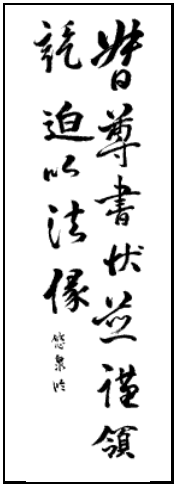 督尊書状並謹領
訖迫以法縁
悠泉臨